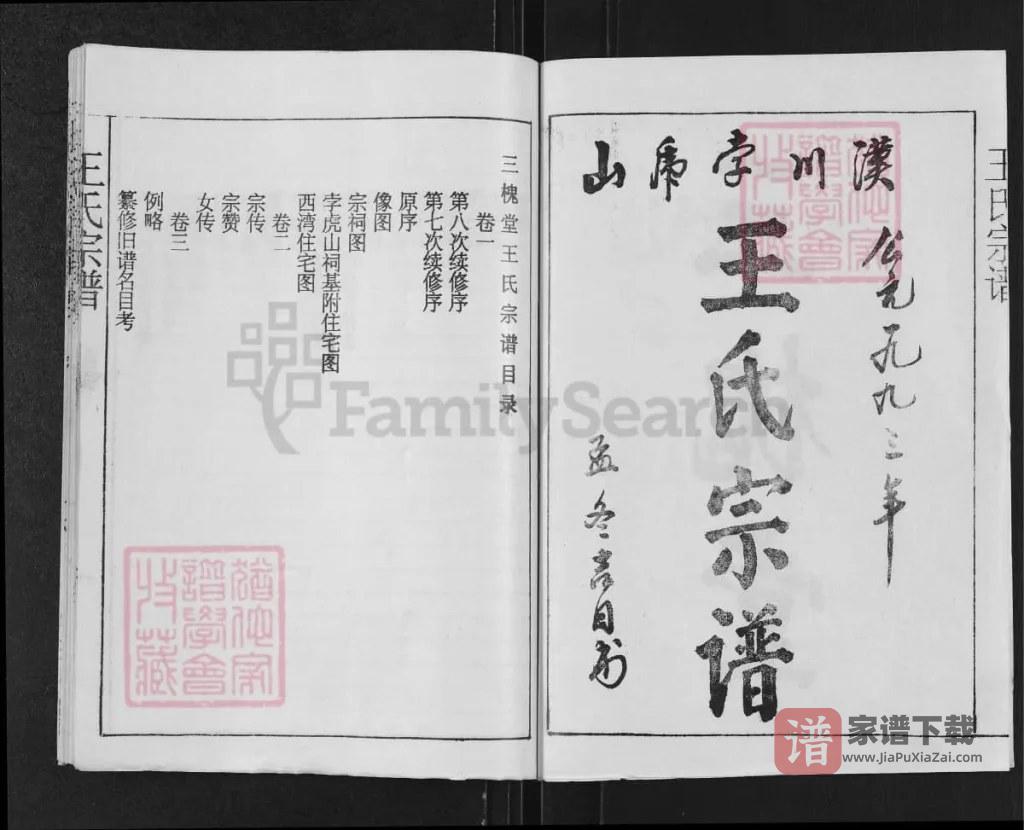 王氏宗谱
汉川李虎山
公元一九九三年
王氏宗谱
孟冬吉日书
三槐堂王氏宗谱目录
卷一
第八次续修序
第七次续修序
原序
像图
宗祠图
李虎山祠基附住宅图
西湾住宅图
卷二
宗传
宗赞
女传
卷三
例略
纂修旧谱名目考
王氏宗谱
谱学会
收藏
谱学会
收藏
FamilySearch
谱
家谱下载
www.JiaPuXiaZai.com